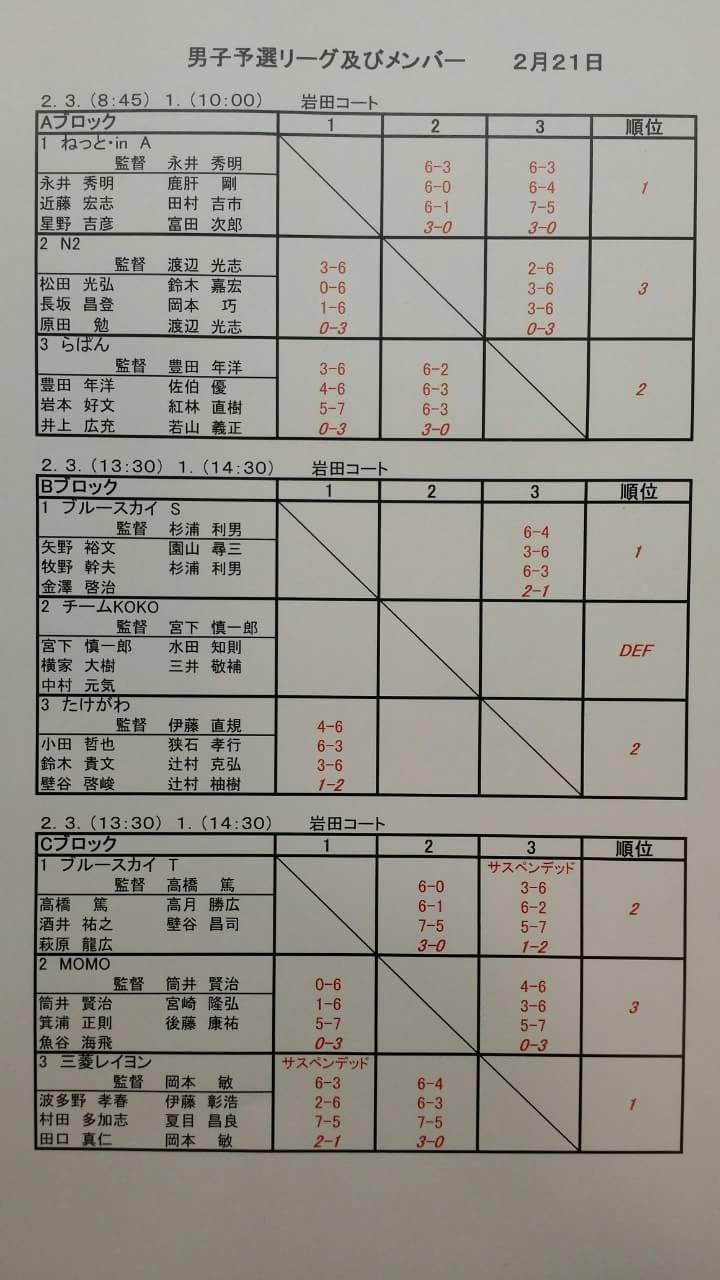 男子予選リーグ及びメンバー　２月２１日
２．３．（８：４５）　１．（１０：００）　岩田コート
Aブロック　1　2　3　順位
1　ねっと・in　A
監督　永井　秀明　6-3　6-3
永井　秀明　鹿肝　剛　6-0　6-4　1
近藤　宏志　田村　吉市　6-1　7-5
星野　吉彦　富田　次郎　3-0　3-0
2　N2
監督　渡辺　光志　3-6　2-6
松田　光弘　鈴木　嘉宏　0-6　3-6　3
長坂　昌登　岡本　巧　1-6　3-6
原田　勉　渡辺　光志　0-3　0-3
3　らぱん
監督　豊田　年洋　3-6　6-2
豊田　年洋　佐伯　優　4-6　6-3　2
岩本　好文　紅林　直樹　5-7　6-3
井上　広充　若山　義正　0-3　3-0
２．３．（１３：３０）　１．（１４：３０）　岩田コート
Bブロック　1　2　3　順位
1　ブルースカイ　S
監督　杉浦　利男　6-4
矢野　裕文　園山　尋三　3-6　1
牧野　幹夫　杉浦　利男　6-3
金澤　啓治　2-1
2　チームKOKO
監督　宮下　慎一郎
宮下　慎一郎　水田　知則　DEF
横家　大樹　三井　敬補
中村　元気
3　たけがわ
監督　伊藤　直規　4-6
小田　哲也　狭石　孝行　6-3　2
鈴木　貴文　辻村　克弘　3-6
壁谷　啓峻　辻村　柚樹　1-2
２．３．（１３：３０）　１．（１４：３０）　岩田コート
Cブロック　1　2　3　順位
1　ブルースカイ　T　サスペンデッド
監督　高橋　篤　6-0　3-6
高橋　篤　高月　勝広　6-1　6-2　2
酒井　祐之　壁谷　昌司　7-5　5-7
萩原　龍広　3-0　1-2
2　MOMO
監督　筒井　賢治　0-6　4-6
筒井　賢治　宮崎　隆弘　1-6　3-6　3
箕浦　正則　後藤　康祐　5-7　5-7
魚谷　海飛　0-3　0-3
3　三菱レイヨン　サスペンデッド
監督　岡本　敏　6-3　6-4
波多野　孝春　伊藤　彰浩　2-6　6-3　1
村田　多加志　夏目　昌良　7-5　7-5
田口　真仁　岡本　敏　2-1　3-0